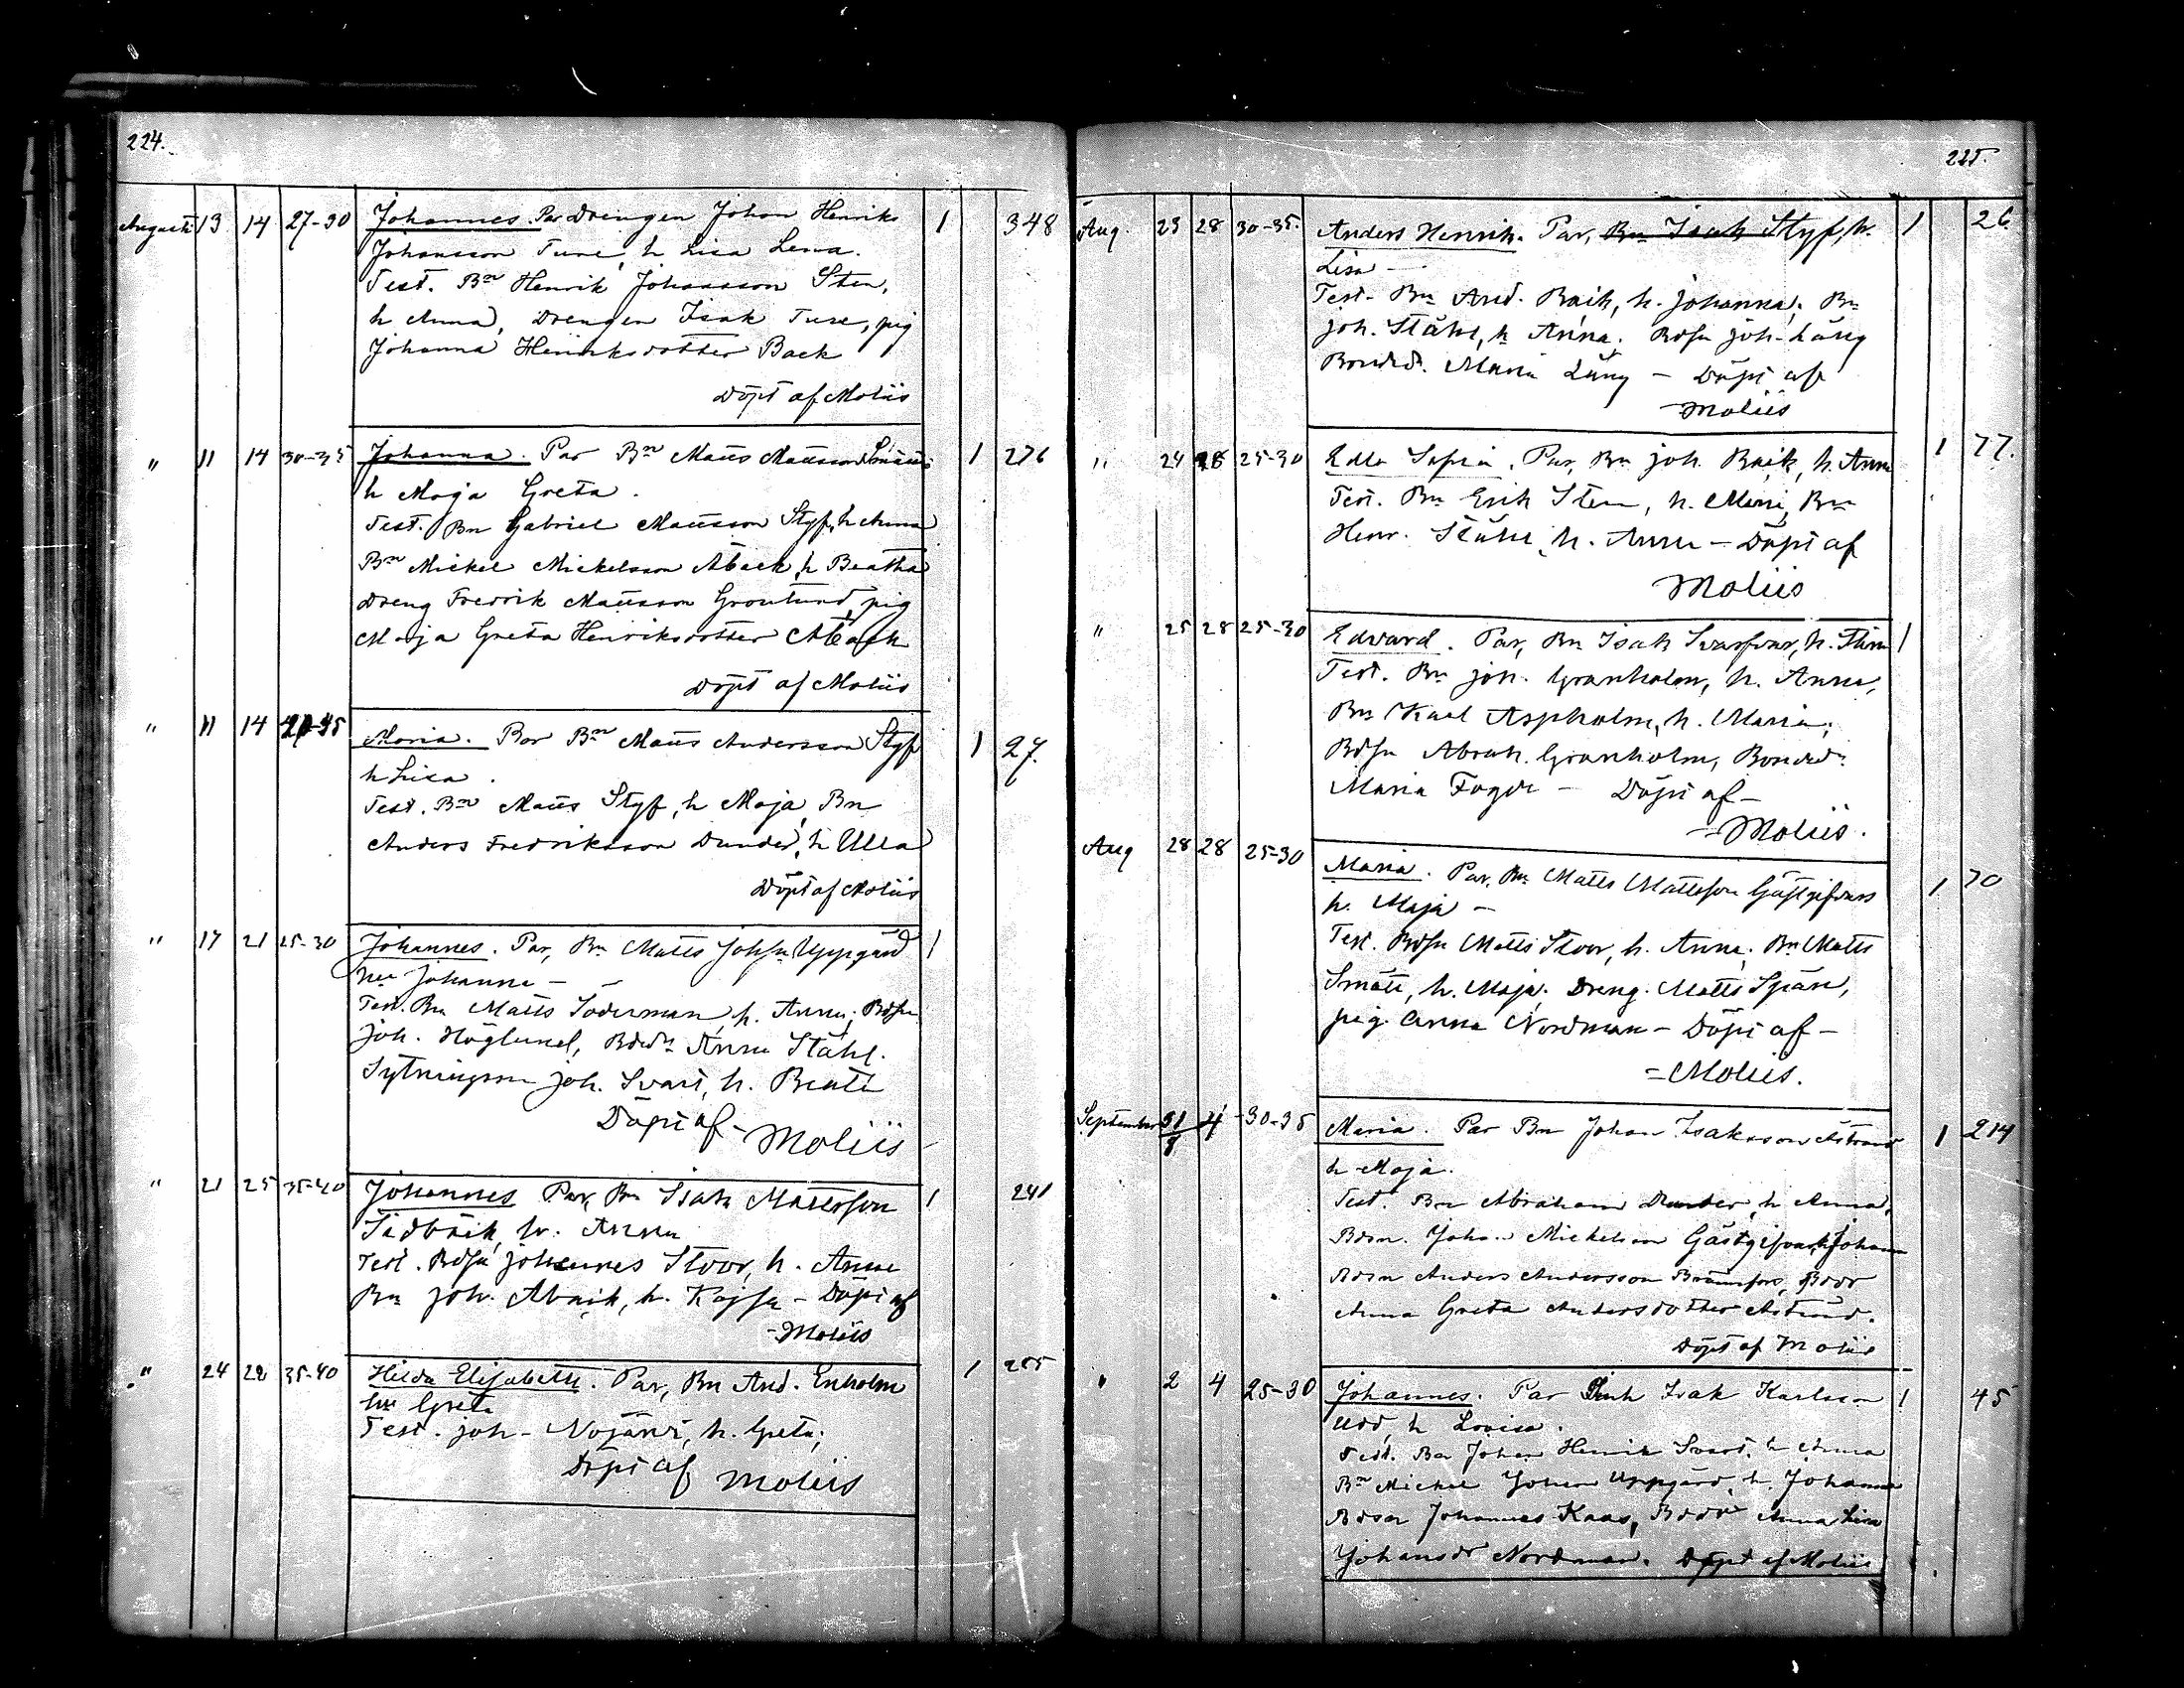 224.
Augusti 13 14 27-30 Johannes. Par Drengen Johan Henrik 1 348
Johansson Ture, h Lisa Lena.
Test. Bn Henrik Johansson Sten,
h Anna, Drengen Isak Ture, pig
Johanna Henriksdotter Back
Döpt af Moliis
" 11 14 30-35 Johanna. Par Bn Matts Mattsson Smått 1 276
h Maja Greta.
Test. Bn Gabriel Mattsson Styf, h Anna
Bn Mickel Mickelsson Åback, h Beatha
Dreng Fredrik Mattsson Gronlund, pig
Maja Greta Henriksdotter Åback
Döpt af Moliis
" 11 14 Maria. Par Bn Matts Andersson Styf 1 27.
h Lisa.
Test. Bn Matts Styf, h Maja, Bn
Anders Fredriksson Dunder, h Ulla
Döpt af Moliis
" 17 21 25-30 Johannes. Par, Bn Matts Johsn Uppgård 1
hu Johanna -
Test. Bn Matts Söderman, h. Anna; Bdsn
Joh. Höglund, Bddr Anna Ståhl.
Sytningsm Joh. Svart, h. Beata
Döpt af - Moliis
" 21 25 35-40 Johannes. Par, Bn Isak Mattsson 1 241
h. Anna
Test. Bdsn Johannes Stoor, h. Anna
Bn Joh. Åbäck, h. Kajsa - Döpt af
- Moliis
" 24 28 35-40 Hilda Elisabeth. Par, Bn And. Enholm 1 255
hu Greta
Test. Joh. h. Greta;
Döpt af Moliis
225.
Aug. 23 28 30-35. Anders Henrik. Par, Bn Isak Styf, h. 1 26
Lisa -
Test. Bn And. Bäck, h. Johanna; Bn
Joh. Ståhl, h Anna; Bdsn Joh. Lång
Bonded. Maria Lång - Döpt af
Moliis
" 24 28 25-30 Edla Sofia. Par, Bn Joh. Bäck, h. Anna 1 77.
Test. Bn Erik Sten, h. Maria, Bn
Henr. Ståhl, h. Anna - Döpt af
Moliis
" 25 28 25-30 Edvard. Par, Bn Isak Svarfvar, h. 1
Test. Bn Joh. Granholm, h. Anna,
Bn Karl Aspholm, h. Maria;
Bdsn Abrah. Granholm, Bonded.
Maria Fogde - Döpt af -
= Moliis.
Aug 28 28 25-30 Maria. Par, Bn Matts Mattsson Gästgifvars 1 70
h. Maja -
Test. Bdsn Matts Stoor, h. Anna; Bn Matts
Smått, h. Maja; Dreng. Matts Spåre,
pig. Anna Nordman - Döpt af -
= Moliis.
September 31/8 4 30-35 Maria. Par Bn Johan Isaksson Åstrand 1 214
h Maja.
Test. Bn Abraham Dunder, h Anna,
Bdsn. Johan Mickelsson Gästgifvars, h Johanna
Bdsn Anders Andersson Brännfors, Bddr
Anna Greta Andersdotter Åstrand.
Döpt af Moliis
" 2 4 25-30 Johannes. Par Isak Karlsson 1 45
Udd, h Lovisa.
Test. Bn Johan Henrik Svart, h Anna
Bn Mickel Johan Uppgård, h. Johanna
Bdsn Johannes Kaas, Bddr Anna Lisa
Johansdr Nordman. Döpt af Moliis